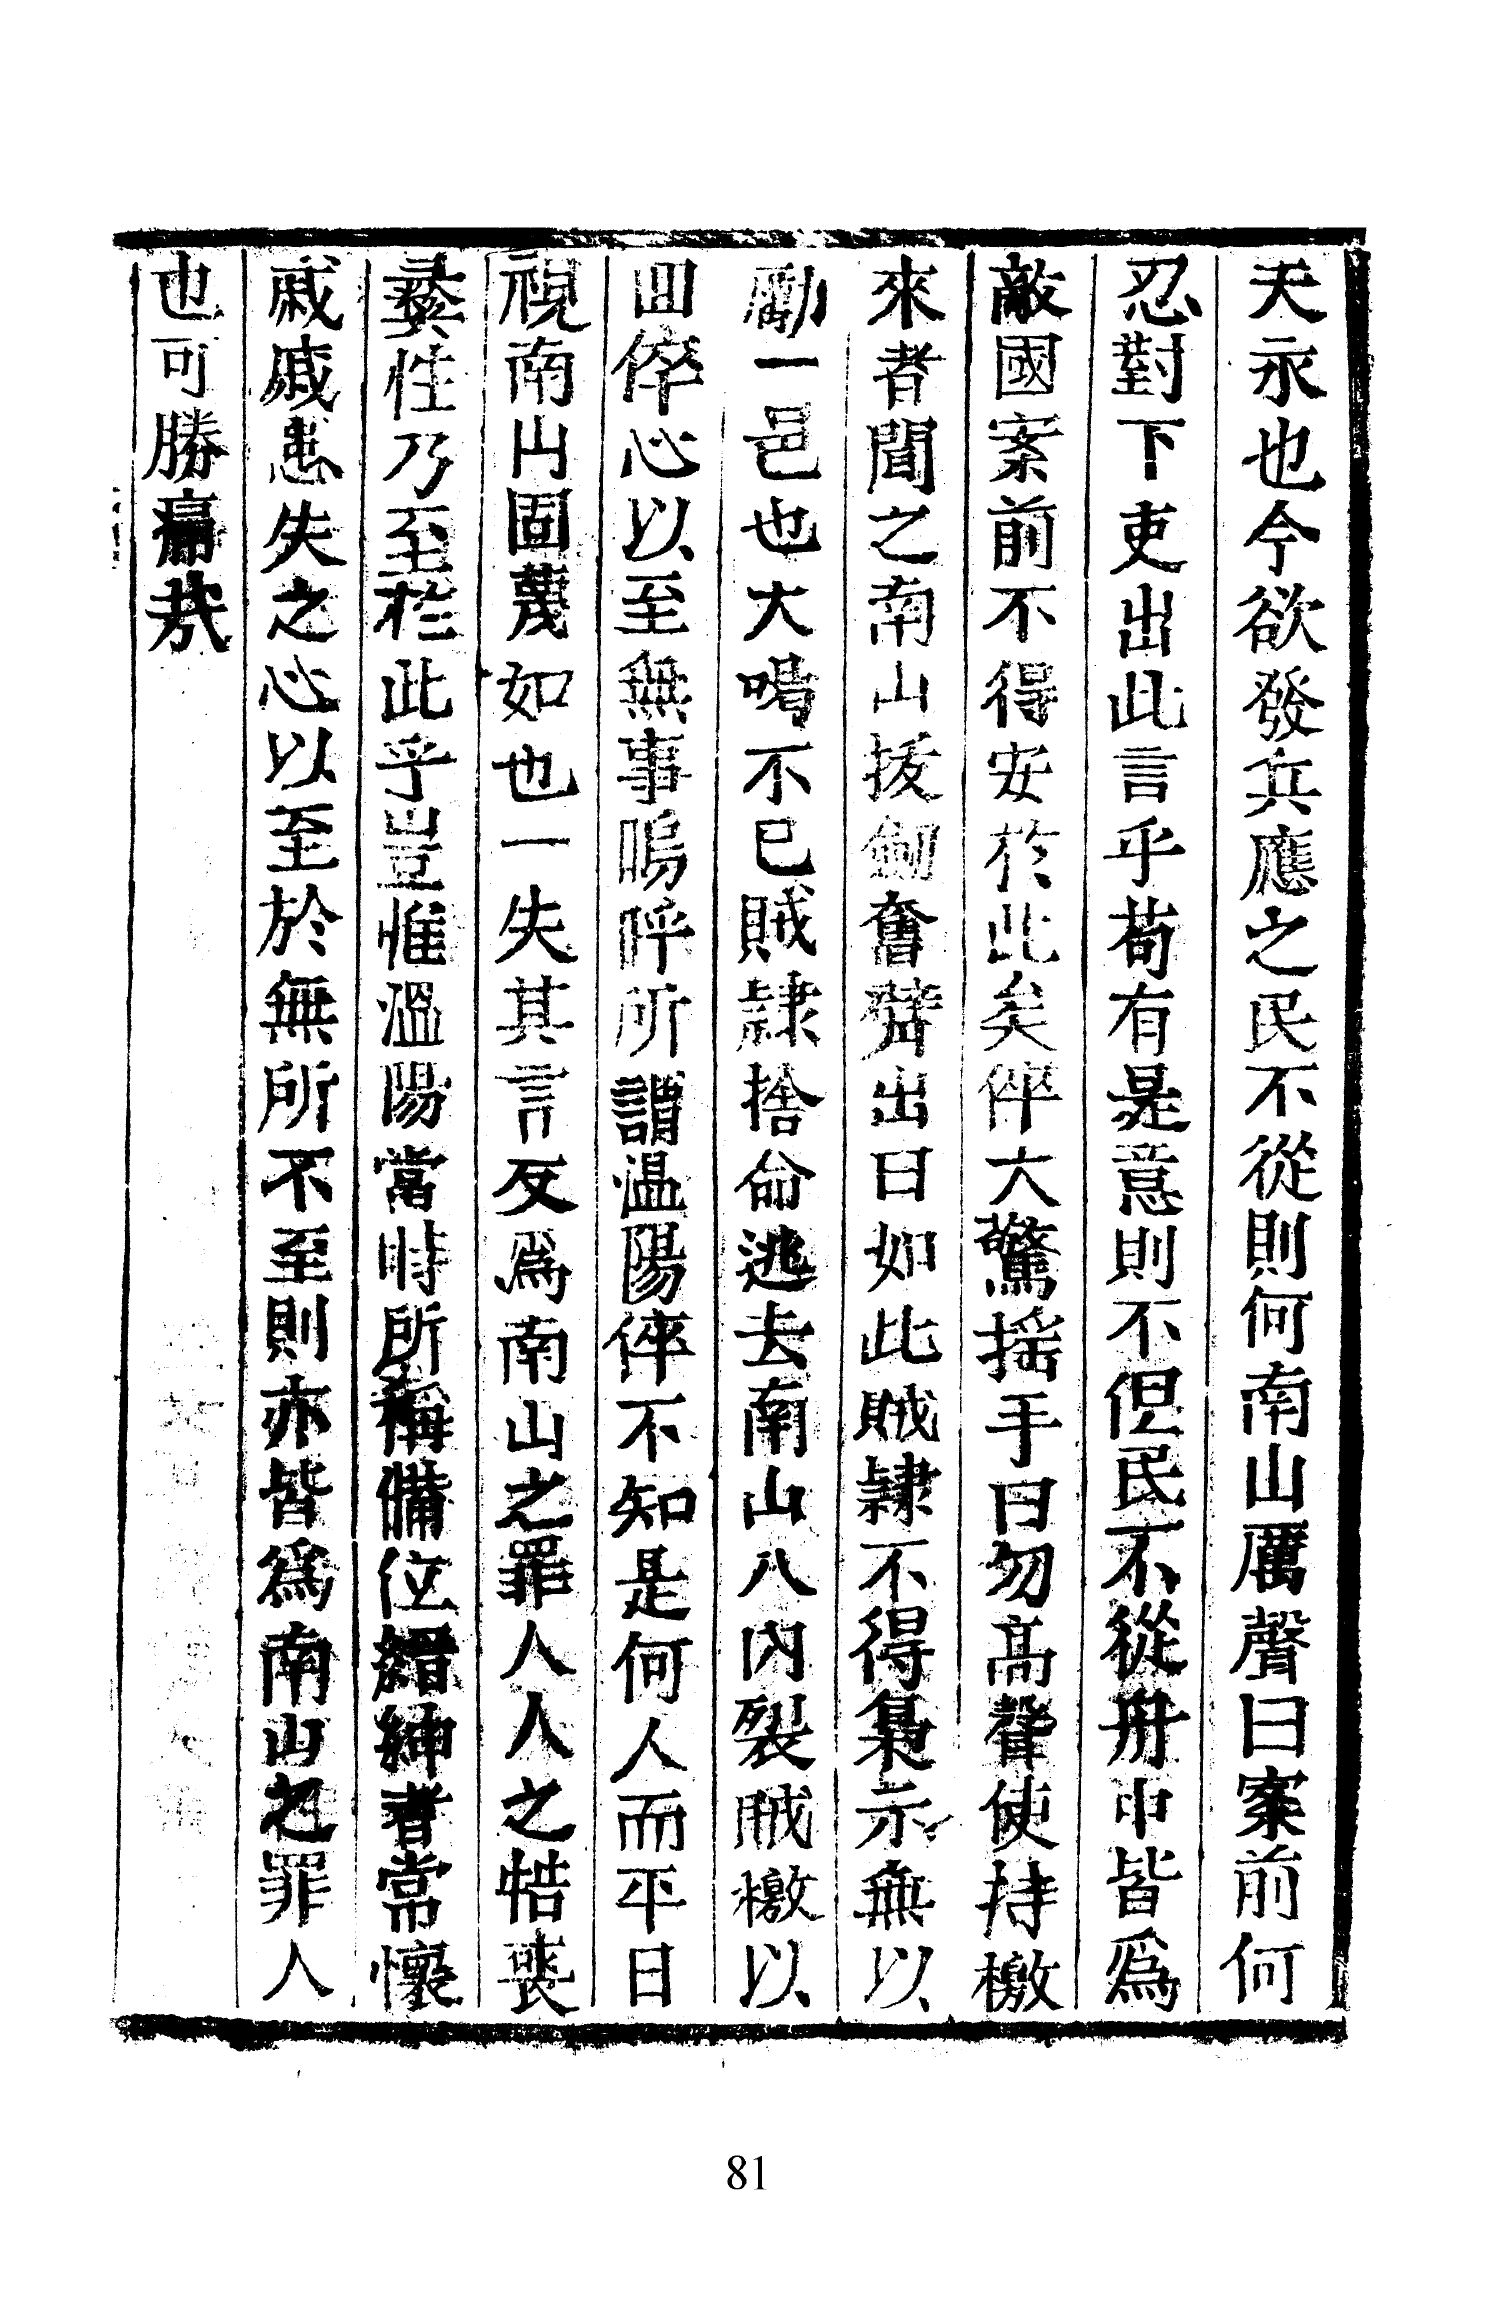 天永也今欲發兵應之民不從則何南山厲聲曰案前何
忍對下吏出此言乎苟有是意則不但民不從舟中皆爲
敵國案前不得安於此矣倅大驚搖手曰勿高聲使持檄
來者聞之南山拔劒奮臂出曰如此賊隷不得梟示無以
勵一邑也大喝不已賊隷捨命逃去南山入內裂賊檄以
回倅心以至無事嗚呼所謂温陽倅不知是何人而平日
視南山固蔑如也一失其言反爲南山之罪人人之牿喪
彜性乃至於此乎豈惟溫陽當時所稱備位縉紳者常懷
戚戚患失之心以至於無所不至則亦皆爲南山之罪人
也可勝痛哉
81